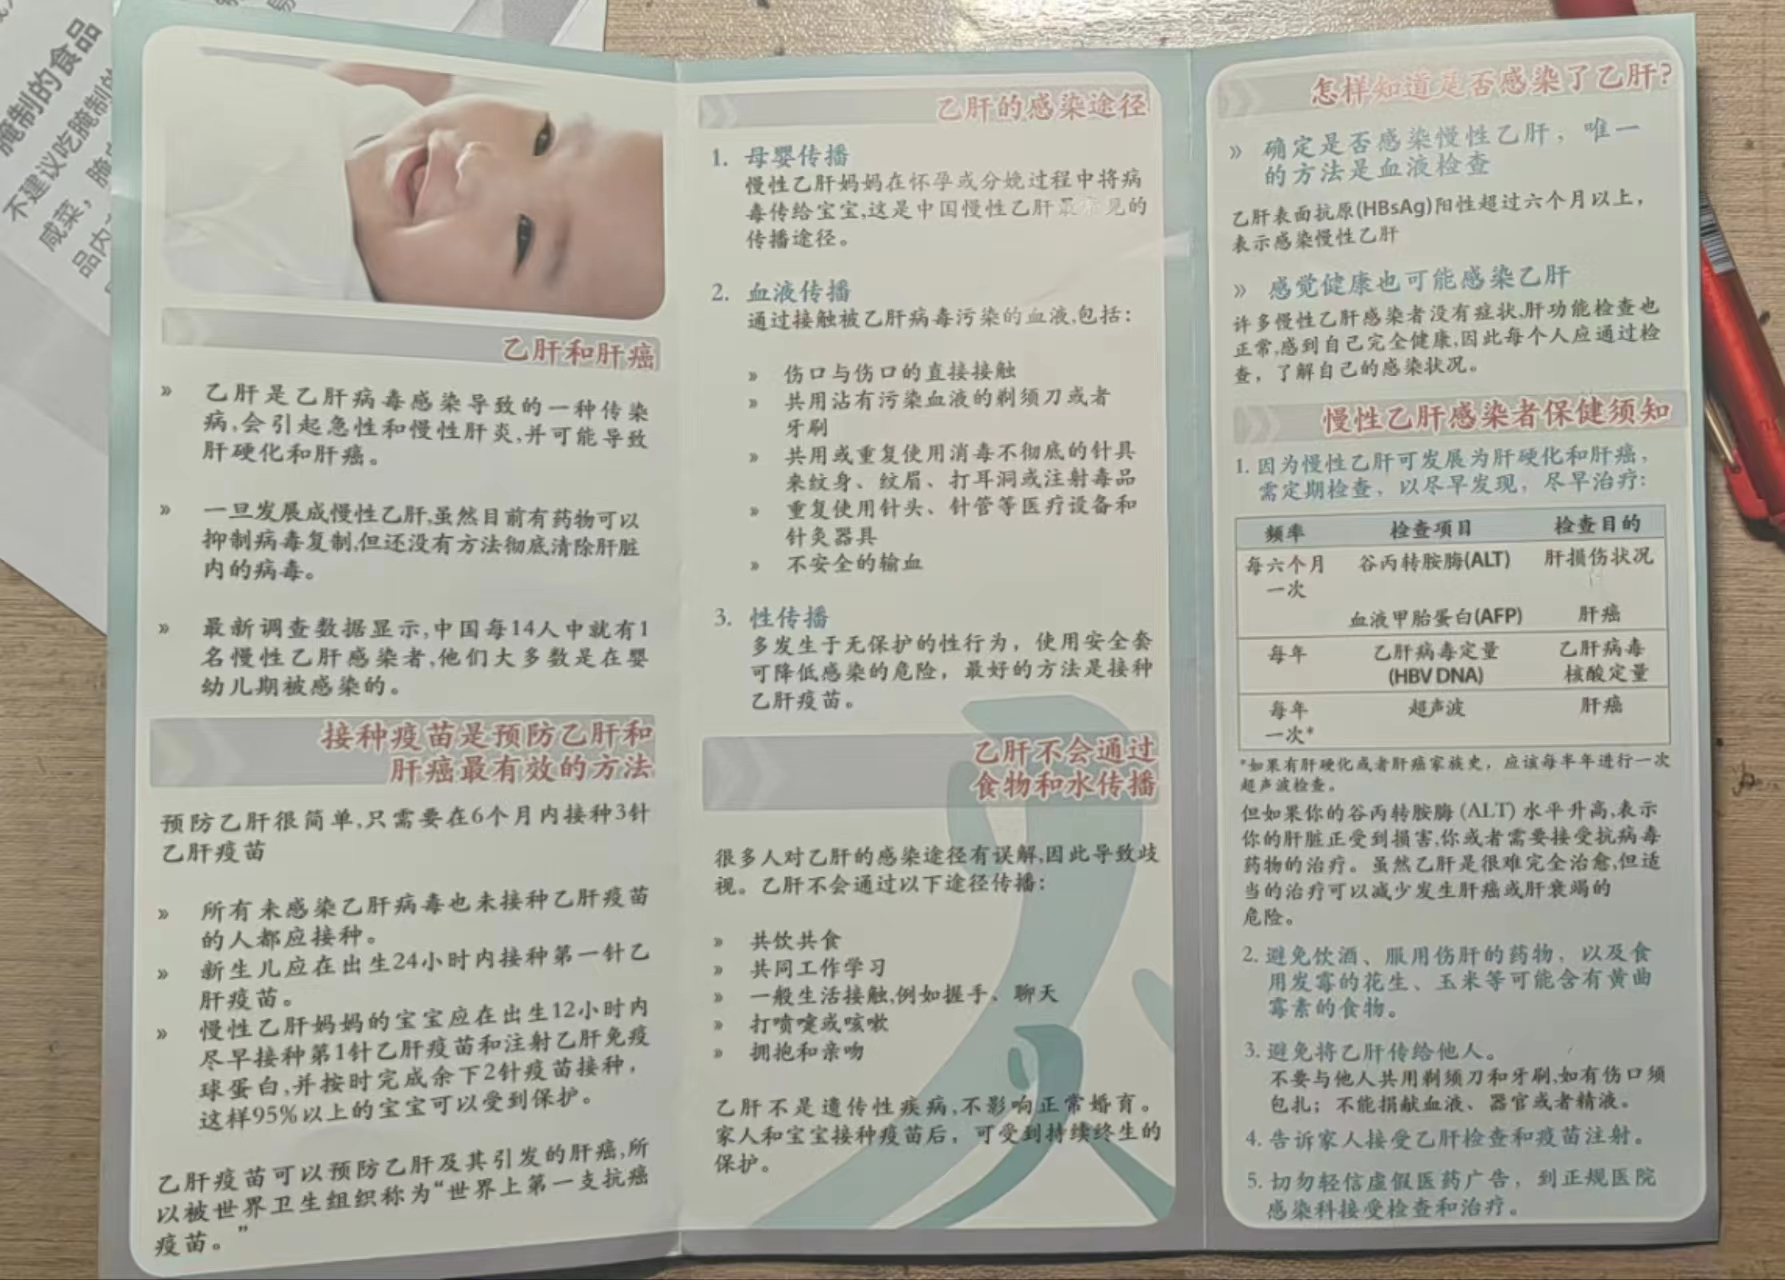 腌制的食品
不建议吃腌制的
咸菜，腌
品内
乙肝和肝癌
» 乙肝是乙肝病毒感染导致的一种传染
病,会引起急性和慢性肝炎,并可能导致
肝硬化和肝癌。
» 一旦发展成慢性乙肝,虽然目前有药物可以
抑制病毒复制,但还没有方法彻底清除肝脏
内的病毒。
» 最新调查数据显示,中国每14人中就有1
名慢性乙肝感染者,他们大多数是在婴
幼儿期被感染的。
接种疫苗是预防乙肝和
肝癌最有效的方法
预防乙肝很简单,只需要在6个月内接种3针
乙肝疫苗
» 所有未感染乙肝病毒也未接种乙肝疫苗
的人都应接种。
» 新生儿应在出生24小时内接种第一针乙
肝疫苗。
» 慢性乙肝妈妈的宝宝应在出生12小时内
尽早接种第1针乙肝疫苗和注射乙肝免疫
球蛋白,并按时完成余下2针疫苗接种，
这样95%以上的宝宝可以受到保护。
乙肝疫苗可以预防乙肝及其引发的肝癌,所
以被世界卫生组织称为“世界上第一支抗癌
疫苗。”
乙肝的感染途径
1. 母婴传播
慢性乙肝妈妈在怀孕或分娩过程中将病
毒传给宝宝,这是中国慢性乙肝最常见的
传播途径。
2. 血液传播
通过接触被乙肝病毒污染的血液,包括：
» 伤口与伤口的直接接触
» 共用沾有污染血液的剃须刀或者
牙刷
» 共用或重复使用消毒不彻底的针具
来纹身、纹眉、打耳洞或注射毒品
» 重复使用针头、针管等医疗设备和
针灸器具
» 不安全的输血
3. 性传播
多发生于无保护的性行为，使用安全套
可降低感染的危险，最好的方法是接种
乙肝疫苗。
乙肝不会通过
食物和水传播
很多人对乙肝的感染途径有误解,因此导致歧
视。乙肝不会通过以下途径传播：
» 共饮共食
» 共同工作学习
» 一般生活接触,例如握手、聊天
» 打喷嚏或咳嗽
» 拥抱和亲吻
乙肝不是遗传性疾病,不影响正常婚育。
家人和宝宝接种疫苗后，可受到持续终生的
保护。
怎样知道是否感染了乙肝?
» 确定是否感染慢性乙肝，唯一
的方法是血液检查
乙肝表面抗原(HBsAg)阳性超过六个月以上，
表示感染慢性乙肝
» 感觉健康也可能感染乙肝
许多慢性乙肝感染者没有症状,肝功能检查也
正常,感到自己完全健康,因此每个人应通过检
查，了解自己的感染状况。
慢性乙肝感染者保健须知
1. 因为慢性乙肝可发展为肝硬化和肝癌，
需定期检查，以尽早发现，尽早治疗：
频率 检查项目 检查目的
每六个月 谷丙转胺酶(ALT) 肝损伤状况
一次
血液甲胎蛋白(AFP) 肝癌
每年 乙肝病毒定量 乙肝病毒
(HBV DNA) 核酸定量
每年 超声波 肝癌
一次*
*如果有肝硬化或者肝癌家族史，应该每半年进行一次
超声波检查。
但如果你的谷丙转胺酶 (ALT) 水平升高,表示
你的肝脏正受到损害,你或者需要接受抗病毒
药物的治疗。虽然乙肝是很难完全治愈,但适
当的治疗可以减少发生肝癌或肝衰竭的
危险。
2. 避免饮酒、服用伤肝的药物，以及食
用发霉的花生、玉米等可能含有黄曲
霉素的食物。
3. 避免将乙肝传给他人。
不要与他人共用剃须刀和牙刷,如有伤口须
包扎；不能捐献血液、器官或者精液。
4. 告诉家人接受乙肝检查和疫苗注射。
5. 切勿轻信虚假医药广告，到正规医院
感染科接受检查和治疗。